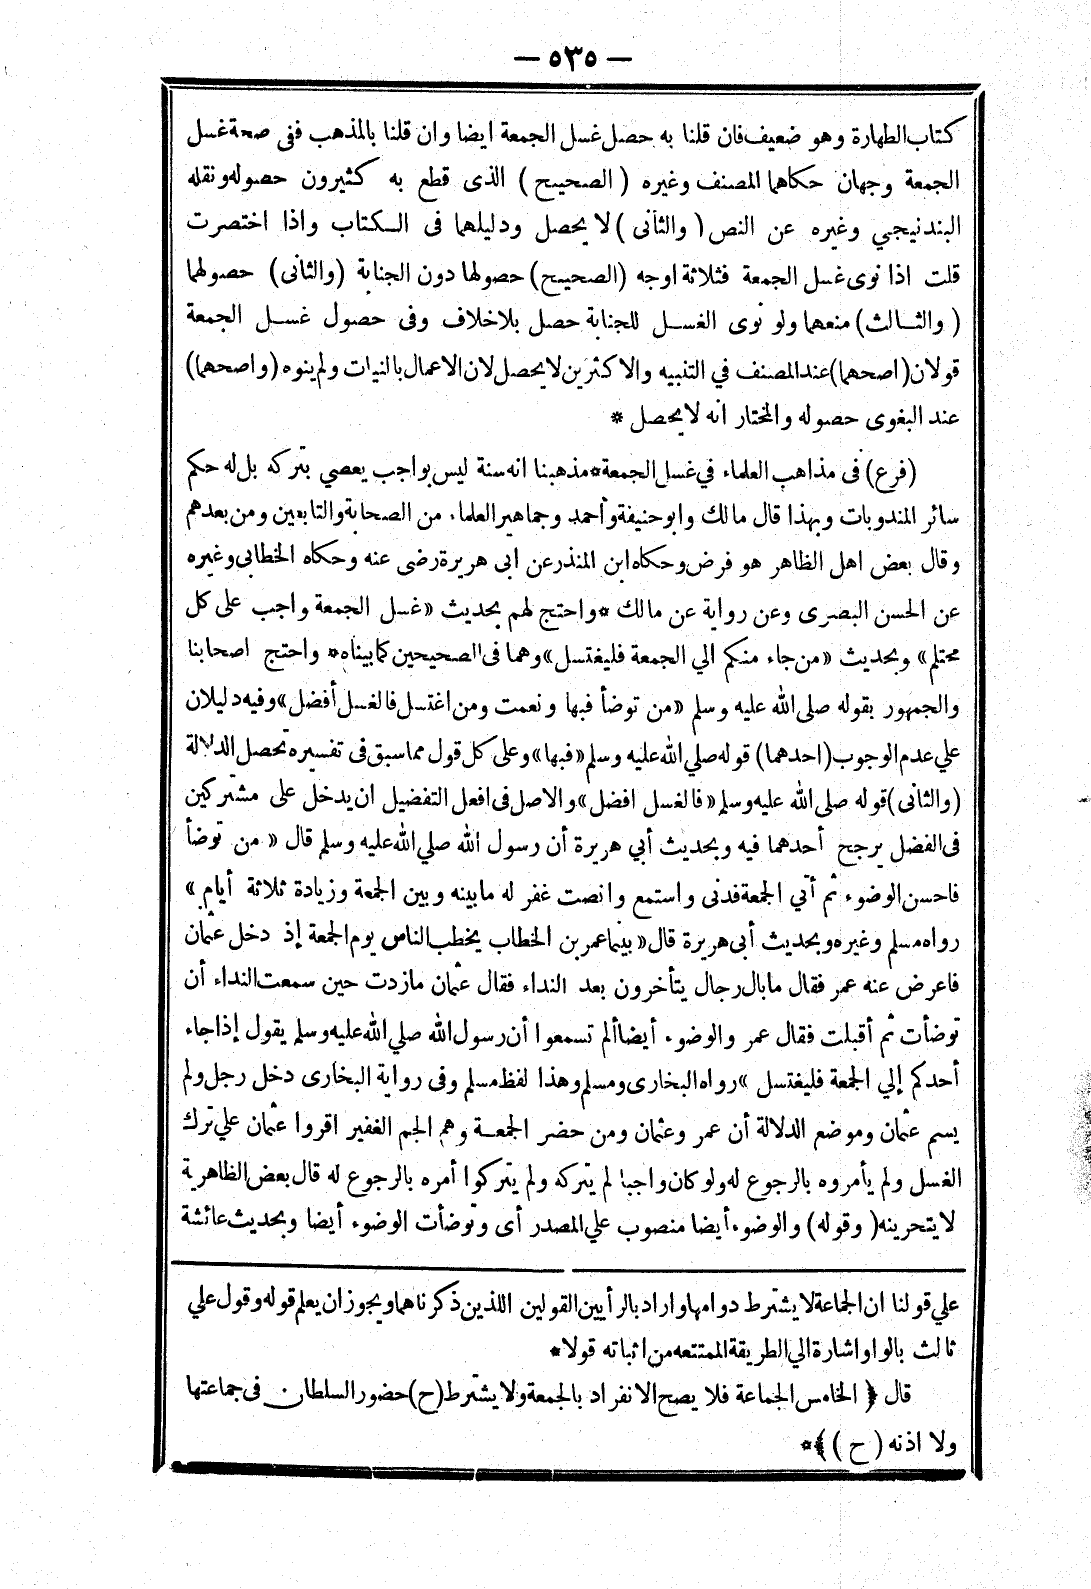 — ٥٣٥ —
كتاب الطهارة وهو ضعيف فان قلنا به حصل غسل الجمعة ايضا وان قلنا بالمذهب ففى صحة غسل
الجمعة وجهان حكاهما المصنف وغيره ( الصحيح ) الذى قطع به كثيرون حصوله ونقله
البندنيجي وغيره عن النص ( والثانى ) لا يحصل ودليلهما فى الكتاب واذا اختصرت
قلت اذا نوى غسل الجمعة فثلاثة اوجه (الصحيح) حصولها دون الجنابة (والثانى) حصولهما
( والثالث) منعهما ولو نوى الغسل للجنابة حصل بلاخلاف وفى حصول غسل الجمعة
قولان (اصحهما) عند المصنف في التنبيه والاكثرين لا يحصل لان الاعمال بالنيات ولم ينوه (واصحهما)
عند البغوى حصوله والمختار انه لا يحصل *
(فرع) فى مذاهب العلماء في غسل الجمعة* مذهبنا انه سنة ليس بواجب يعصي بتركه بل له حكم
سائر المندوبات وبهذا قال مالك وابو حنيفة وأحمد وجماهير العلماء من الصحابة والتابعين ومن بعدهم
وقال بعض اهل الظاهر هو فرض وحكاه ابن المنذر عن ابى هريرة رضى عنه وحكاه الخطابى وغيره
عن الحسن البصرى وعن رواية عن مالك *واحتج لهم بحديث «غسل الجمعة واجب على كل
محتلم» وبحديث «من جاء منكم الي الجمعة فليغتسل» وهما فى الصحيحين كما بيناه* واحتج اصحابنا
والجمهور بقوله صلى الله عليه وسلم «من توضأ فبها ونعمت ومن اغتسل فالغسل أفضل» وفيه دليلان
علي عدم الوجوب (احدهما) قوله صلي الله عليه وسلم «فبها» وعلى كل قول مما سبق فى تفسيره تحصل الدلالة
(والثانى) قوله صلى الله عليه وسلم «فالغسل افضل» والاصل فى افعل التفضيل ان يدخل على مشتركين
فى الفضل يرجح أحدهما فيه وبحديث أبي هريرة أن رسول الله صلي الله عليه وسلم قال « من توضأ
فاحسن الوضوء ثم أتي الجمعة فدنى واستمع وانصت غفر له ما بينه وبين الجمعة وزيادة ثلاثة أيام »
رواه مسلم وغيره وبحديث أبى هريرة قال «بينما عمر بن الخطاب يخطب الناس يوم الجمعة إذ دخل عثمان
فاعرض عنه عمر فقال ما بال رجال يتأخرون بعد النداء فقال عثمان مازدت حين سمعت النداء أن
توضأت ثم أقبلت فقال عمر والوضوء أيضا ألم تسمعوا أن رسول الله صلي الله عليه وسلم يقول إذا جاء
أحدكم إلي الجمعة فليغتسل » رواه البخارى ومسلم وهذا لفظ مسلم وفى رواية البخارى دخل رجل ولم
يسم عثمان وموضع الدلالة أن عمر وعثمان ومن حضر الجمعة وهم الجم الغفير اقروا عثمان علي ترك
الغسل ولم يأمروه بالرجوع له ولو كان واجبا لم يتركه ولم يتركوا أمره بالرجوع له قال بعض الظاهرية
لا يتحرينه ( وقوله) والوضوء أيضا منصوب علي المصدر أى وتوضأت الوضوء أيضا وبحديث عائشة
علي قولنا ان الجماعة لا يشترط دوامها واراد بالرأيين القولين اللذين ذكرناهما ويجوز ان يعلم قوله وقول علي
ثالث بالواو اشارة الي الطريقة الممتنعه من اثباته قولا*
قال ﴿ الخامس الجماعة فلا يصح الانفراد بالجمعة ولا يشترط (ح) حضور السلطان فى جماعتها
ولا اذنه ( ح ) ﴾*